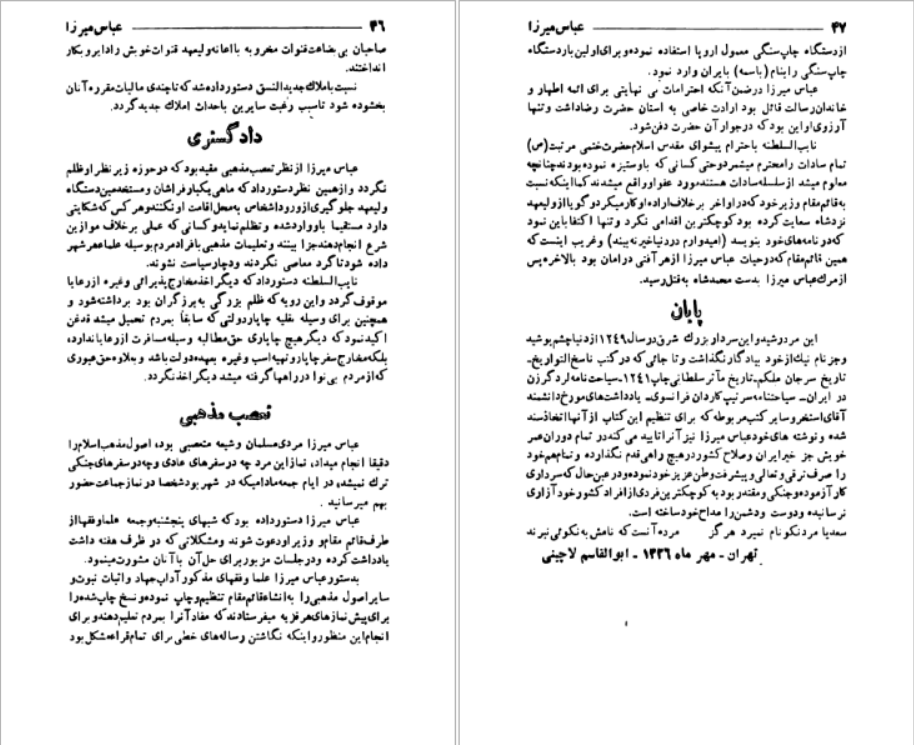 ۴۶ عباس میرزا
صاحبان بی بضاعت قنوات مخروبه با اعانه ولیعهد قنوات خویش را دایر و بکار
انداختند.
نسبت باملاك جدیدالنسق دستور داده شد که تا چندی مالیات مقرره آنان
بخشوده شود تا سبب رغبت سایرین باحداث املاك جدید گردد.
داد گستری
عباس میرزا از نظر تعصب مذهبی مقید بود که در حوزه زیر نظر او ظلم
نگردد و از همین نظر دستور داد که ماهی یکبار فراشان و مستخدمین دستگاه
ولیعهد جلو گیری از ورود اشخاص به محل اقامت او نکنند و هر کس که شکایتی
دارد مستقیما باو وارد شده و تظلم نماید و کسانی که عملی بر خلاف موازین
شرع انجام دهند جزا ببینند و تعلیمات مذهبی بافراد مردم بوسیله علماء هر شهر
داده شود تا گرد معاصی نگردند و دچار سیاست نشوند.
نایب السلطنه دستور داد که دیگر اخذ مخارج پذیرائی و غیره از رعایا
موقوف گردد و این رویه که ظلم بزرگی به برزگران بود برداشته شود و
همچنین برای وسیله نقلیه چاپار دولتی که سابقاً بمردم تحمیل میشد قدغن
اکید نمود که دیگر هیچ چاپاری حق مطالبه وسیله مسافرت از رعایا ندارد،
بلکه مخارج سفر چاپار و تهیه اسب و غیره بعهده دولت باشد و بعلاوه حق عبوری
که از مردم بی نوا در راهها گرفته میشد دیگر اخذ نگردد.
تعصب مذهبی
عباس میرزا مردی مسلمان و شیعه متعصبی بود، اصول مذهب اسلام را
دقیقا انجام میداد، نماز این مرد چه در سفرهای عادی و چه در سفرهای جنگی
ترك نمیشد، در ایام جمعه مادامیکه در شهر بود شخصا در نماز جماعت حضور
بهم میرسانید.
عباس میرزا دستور داده بود که شبهای پنجشنبه و جمعه علما و فقها از
طرف قائم مقام و وزیر او دعوت شوند و مشکلاتی که در ظرف هفته داشت
یادداشت کرده و در جلسات مزبور برای حل آن با آنان مشورت مینمود.
بدستور عباس میرزا علما و فقهای مذکور آداب جهاد و اثبات نبوت و
سایر اصول مذهبی را به انشاء قائم مقام تنظیم و چاپ نموده و نسخ چاپ شده را
برای پیش نمازهای هر قریه میفرستادند که مفاد آنرا بمردم تعلیم دهند و برای
انجام این منظور و اینکه نگاشتن رساله های خطی برای تمام قراء مشکل بود
۴۷ عباس میرزا
از دستگاه چاپ سنگی معمول اروپا استفاده نموده و برای اولین بار دستگاه
چاپ سنگی را بنام (باسمه) بایران وارد نمود.
عباس میرزا در ضمن آنکه احترامات بی نهایتی برای ائمه اطهار و
خاندان رسالت قائل بود ارادت خاصی به استان حضرت رضا داشت و تنها
آرزوی او این بود که در جوار آن حضرت دفن شود.
نایب السلطنه باحترام پیشوای مقدس اسلام حضرت ختمی مرتبت (ص)
تمام سادات را محترم میشمرد و حتی کسانی که با او ستیزه نموده بودند چنانچه
معلوم میشد از سلسله سادات هستند مورد عفو او واقع میشدند کما اینکه نسبت
به قائم مقام وزیر خود که در اواخر بر خلاف اراده او کار میکرد و گویا از ولیعهد
نزد شاه سعایت کرده بود کوچکترین اقدامی نکرد و تنها اکتفا باین نمود
که در نامه های خود بنویسد (امیدوارم در دنیا خیر نه بیند) و غریب اینست که
همین قائم مقام که در حیات عباس میرزا از هر آفتی در امان بود بالاخره پس
از مرك عباس میرزا بدست محمد شاه به قتل رسید.
پایان
این مرد رشید و این سردار بزرك شرق در سال ۱۲۴۹ از دنیا چشم پوشید
و جز نام نیك از خود بیادگار نگذاشت و تا جائی که در کتب ناسخ التواریخ-
تاریخ سرجان ملکم- تاریخ مآثر سلطانی چاپ ۱۲۴۱- سیاحت نامه لرد گرزن
در ایران- سیاحتنامه سرتیپ کاردان فرانسوی- یادداشت های مورخ دانشمند
آقای استخر و سایر کتب مربوطه که برای تنظیم این کتاب از آنها اتخاذ سند
شده و نوشته های خود عباس میرزا نیز آنرا تایید می کند در تمام دوران عمر
خویش جز خیر ایران و صلاح کشور در هیچ راهی قدم نگذارده و تمام هم خود
را صرف ترقی و تعالی و پیشرفت وطن عزیز خود نموده و در عین حال که سرداری
کار آزموده و جنگی و مقتدر بود به کوچکترین فردی از افراد کشور خود آزاری
نرسانیده و دوست و دشمن را مداح خود ساخته است.
سعدیا مرد نکو نام نمیرد هر گز مرده آنست که نامش به نکوئی نبرند
تهران - مهر ماه ۱۳۲۶ - ابوالقاسم لاچینی